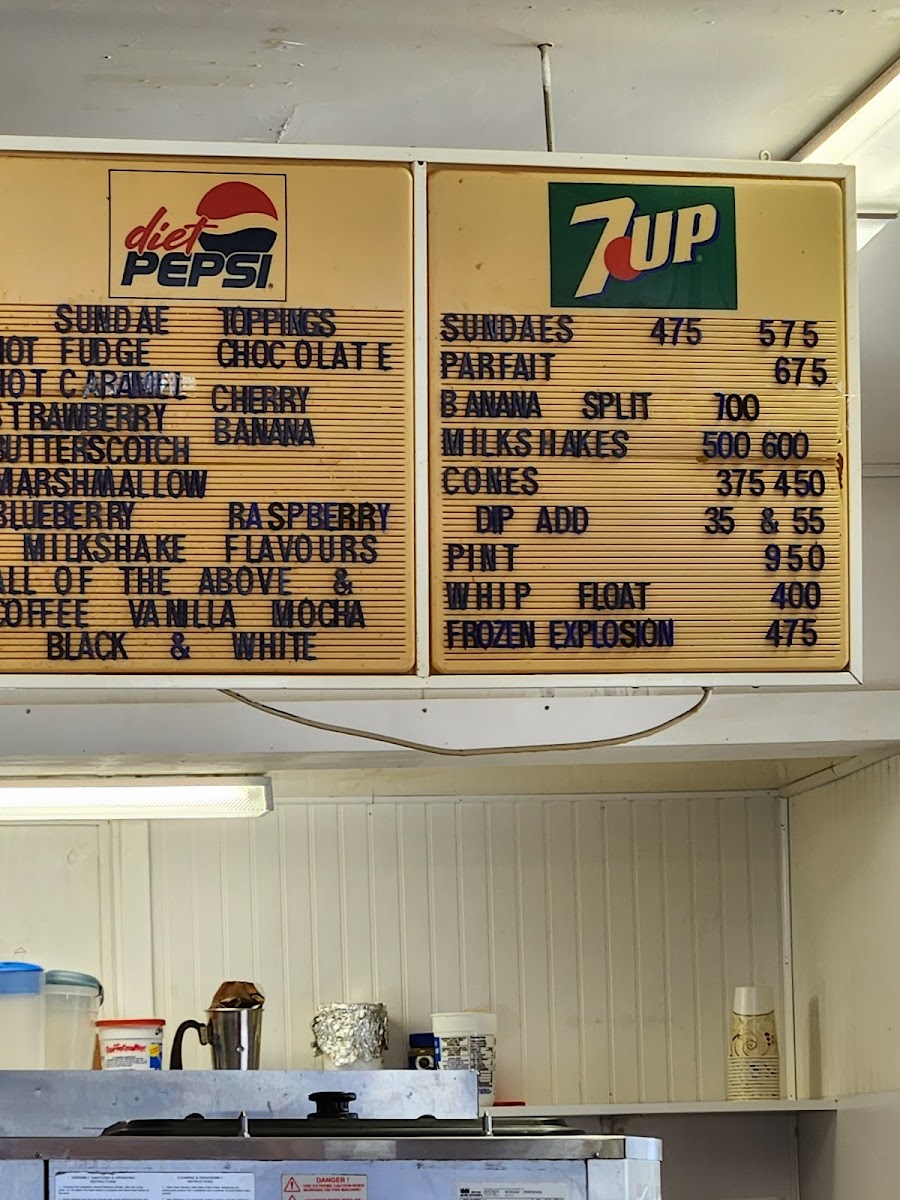 diet
PEPSI
SUNDAE TOPPINGS
HOT FUDGE CHOCOLATE
HOT CARAMEL CHERRY
STRAWBERRY BANANA
BUTTERSCOTCH
MARSHMALLOW
BLUEBERRY RASPBERRY
MILKSHAKE FLAVOURS
ALL OF THE ABOVE &
COFFEE VANILLA MOCHA
BLACK & WHITE
7UP
SUNDAES 475 575
PARFAIT 675
BANANA SPLIT 700
MILKSHAKES 500 600
CONES 375 450
DIP ADD 35 & 55
PINT 950
WHIP FLOAT 400
FROZEN EXPLOSION 475
DANGER!